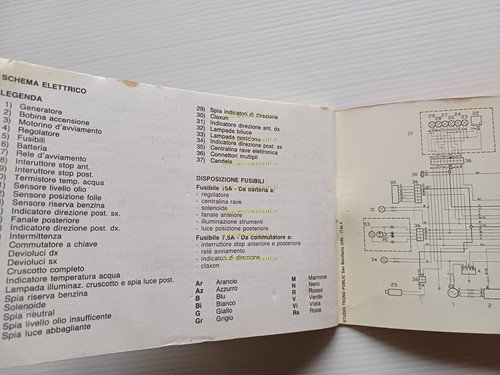 SCHEMA ELETTRICO
LEGENDA
1) Generatore
2) Bobina accensione
3) Motorino d'avviamento
4) Regolatore
5) Fusibili
6) Batteria
7) Rele d'avviamento
8) Interuttore stop ant.
9) Interuttore stop post.
) Termistore temp. acqua
) Sensore livello olio
) Sensore posizione folle
) Sensore riserva benzina
) Indicatore direzione post. sx.
) Fanale posteriore
) Indicatore direzione post. dx.
) Intermittenza
) Commutatore a chiave
Devioluci dx
Devioluci sx
Cruscotto completo
Indicatore temperatura acqua
Lampada illuminaz. cruscotto e spia luce post.
Spia riserva benzina
Solenoide
Spia neutral
Spia livello olio insufficente
Spia luce abbagliante
29) Spia indicatori di direzione
30) Claxon
31) Indicatore direzione ant. dx
32) Lampada biluce
33) Lampada posizione
34) Indicatore direzione post. sx
35) Centralina rave elettronica
36) Connettori multipli
37) Candela
DISPOSIZIONE FUSIBILI
Fusibile 15A - Da batteria a:
- regolatore
- centralina rave
- solenoide
- fanale anteriore
- illuminazione strumenti
- luce posizione posteriore
Fusibile 7,5A - Da commutatore a:
- interruttore stop anteriore e posteriore
- relè avviamento
- indicatori di direzione
- claxon
Ar Arancio
Az Azzurro
B Blu
Bi Bianco
G Giallo
Gr Grigio
M Marrone
N Nero
R Rosso
V Verde
Vi Viola
Rs Rosa